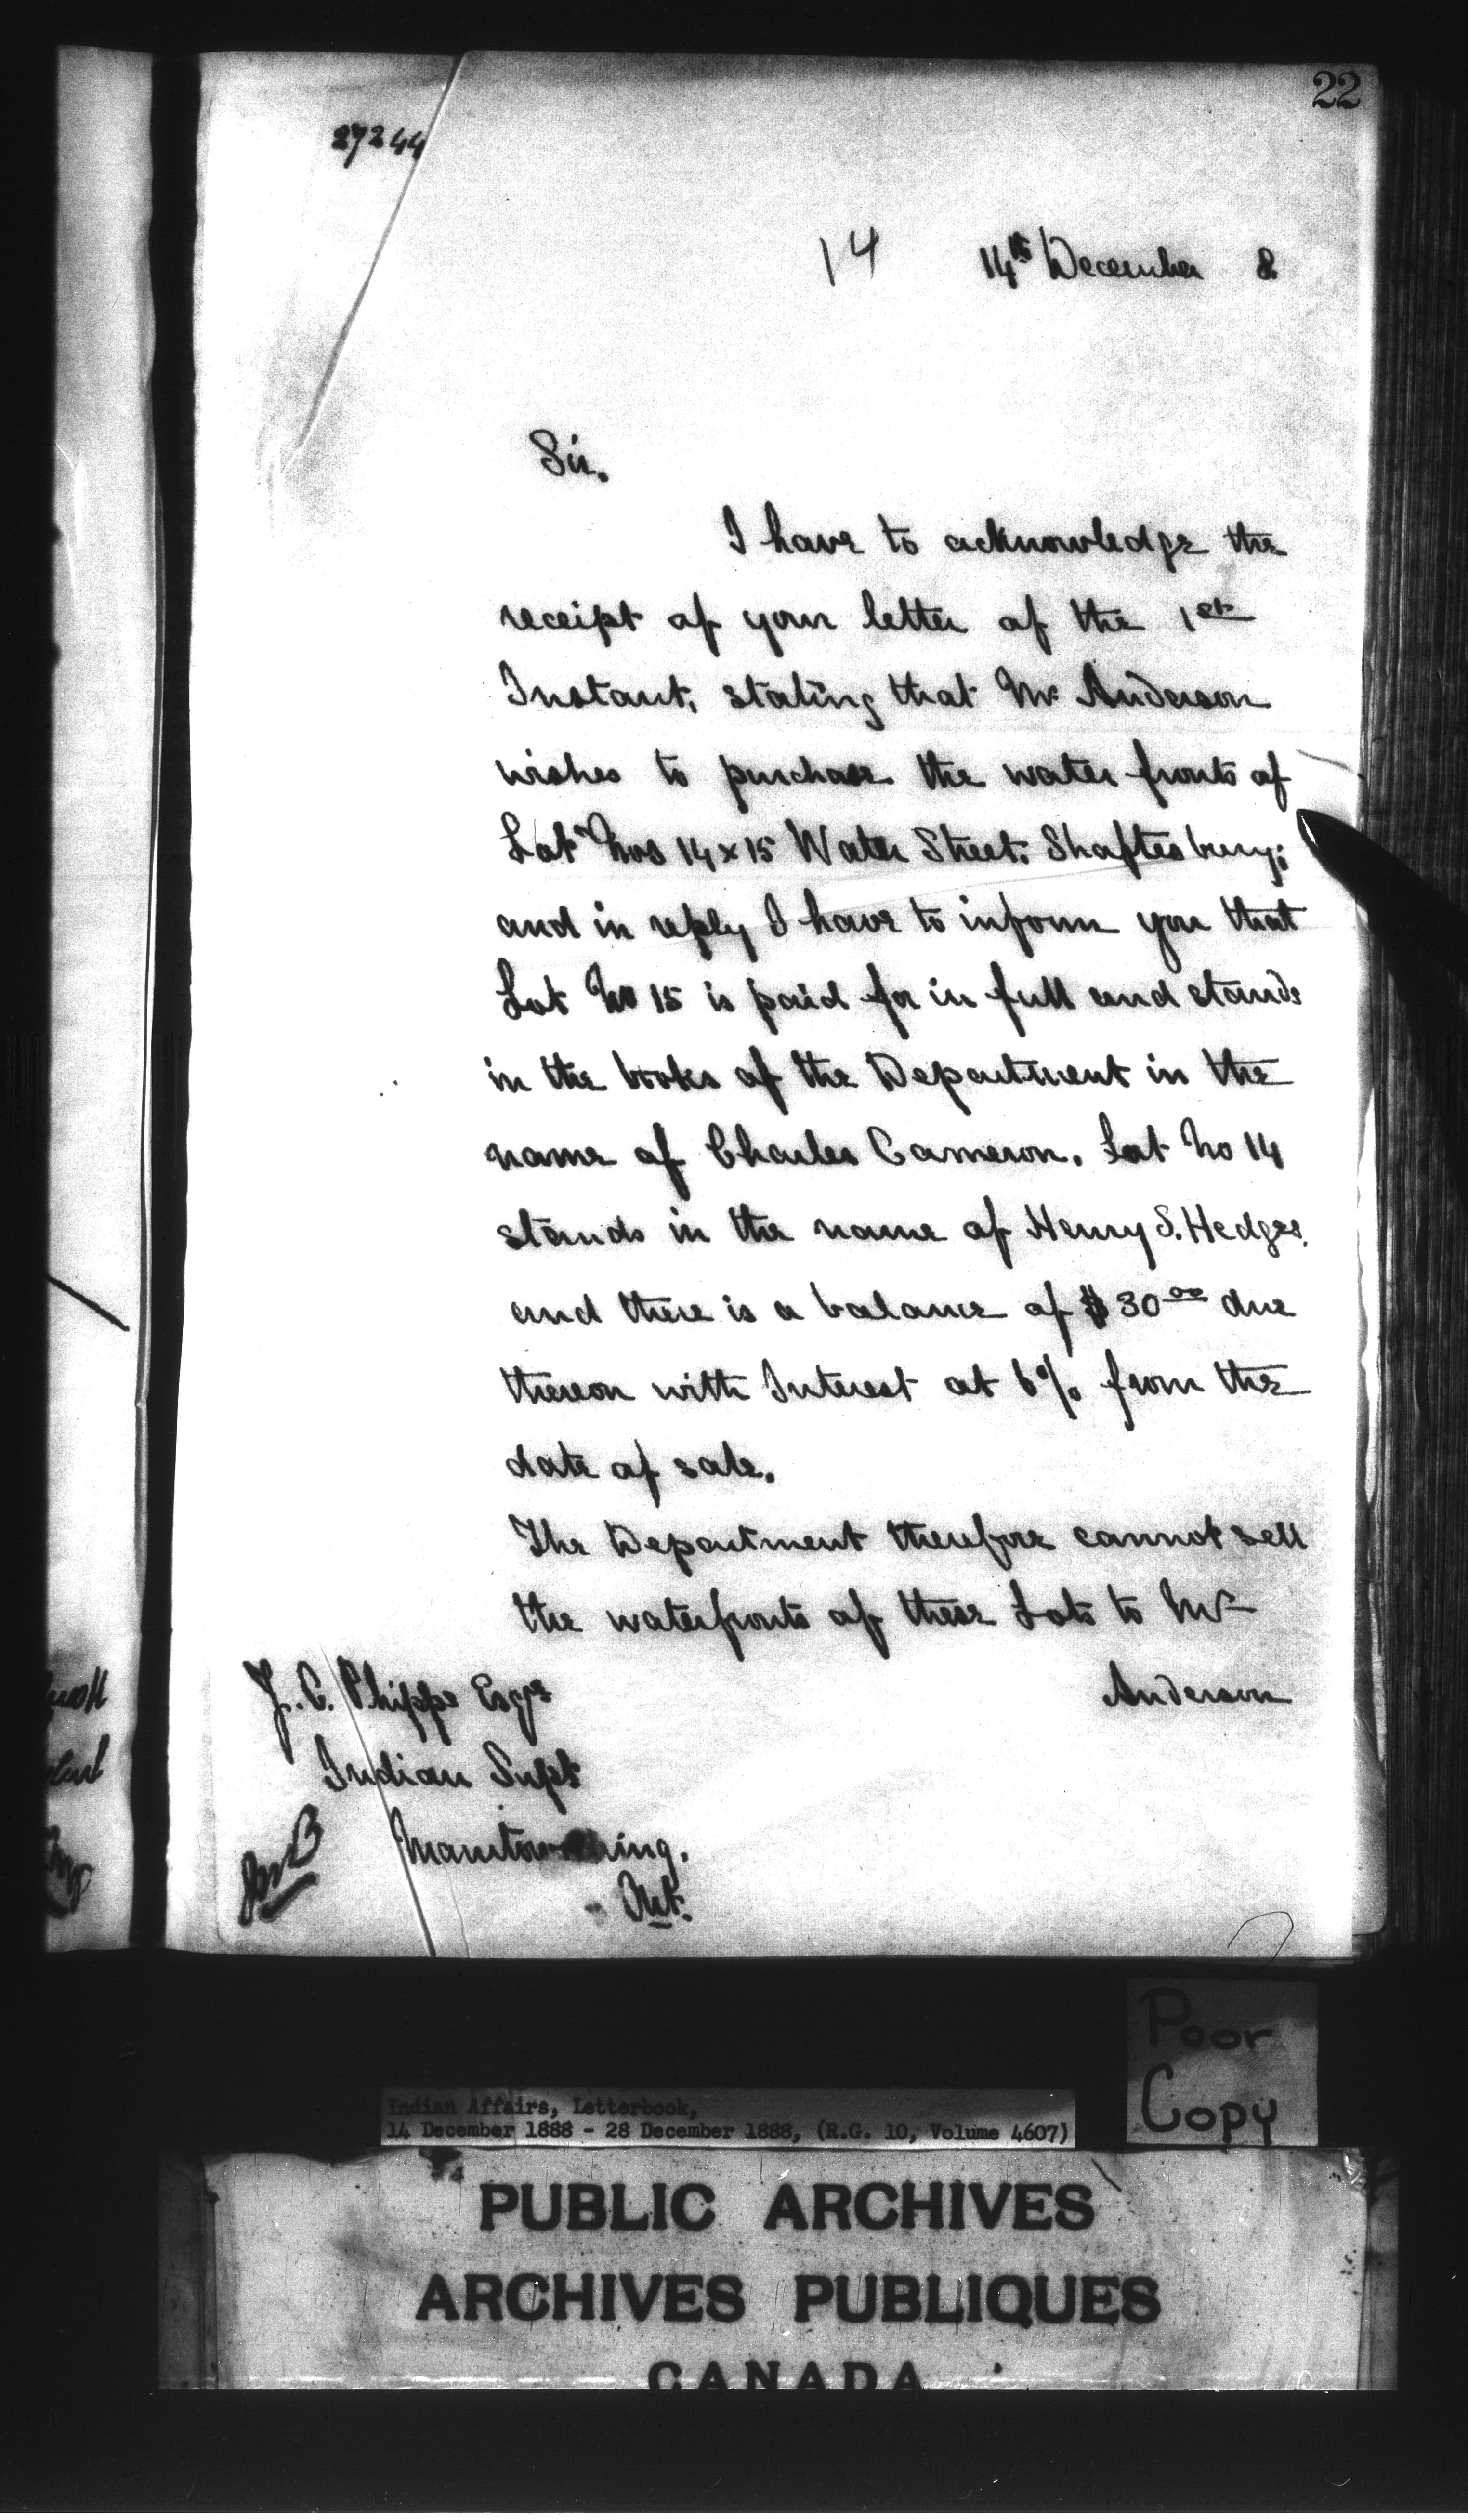 22
27244
14 14th December 8
Sir.
I have to acknowledge the
receipt of your letter of the 1st
Instant, stating that Mr Anderson
wishes to purchase the water fronts of
Lot Nos 14 x 15 Water Street, Shaftesbury;
and in reply I have to inform you that
Lot No 15 is paid for in full and stands
in the books of the Department in the
name of Charles Cameron. Lot No 14
stands in the name of Henry S. Hedges,
and there is a balance of $30 00 due
thereon with Interest at 6% from the
date of sale.
The Department therefore cannot sell
the waterfronts of these Lots to Mr
Anderson
J. C. Phipps Esqre
Indian Supt
Manitowaning.
Ont.
Poor
Copy
Indian Affairs, Letterbook,
14 December 1888 - 28 December 1888, (R.G. 10, Volume 4607)
PUBLIC ARCHIVES
ARCHIVES PUBLIQUES
CANADA